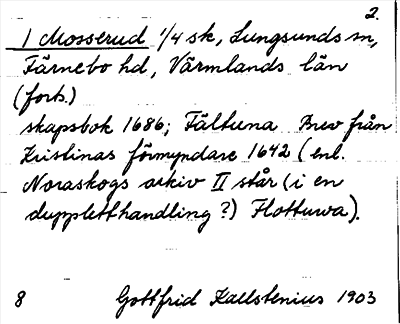 2.
1 Mosserud 1/4 sk, Lungsunds sn,
Färnebo hd, Värmlands län
(forts.)
skapsbok 1686; Fältuna Brev från
Kristinas förmyndare 1642 (enl.
Noraskogs arkiv II står (i en
duppletthandling?) Flottuwa).
8 Gottfrid Kallstenius 1903